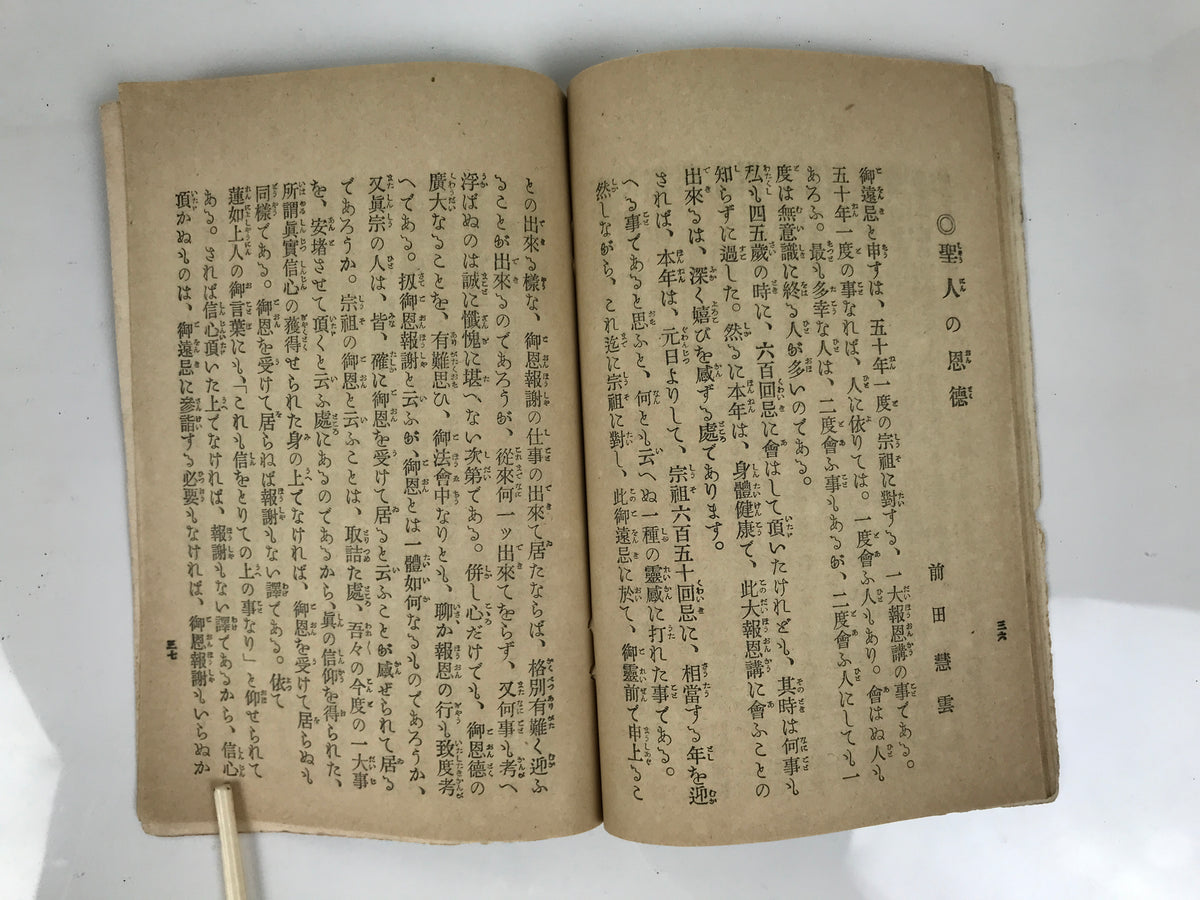 ◎聖人の恩德
前田慧雲
御遠忌と申すは、五十年一度の宗祖に對する、一大報恩講の事である。
五十年一度の事なれば、人に依りては。一度會ふ人もあり。會はぬ人も
あろふ。最も多幸な人は、二度會ふ事もあるが、二度會ふ人にしても一
度は無意識に終る人が多いのである。
私も四五歲の時に、六百回忌に會はして頂いたけれども、其時は何事も
知らずに過した。然るに本年は、身體健康で、此大報恩講に會ふことの
出來るは、深く嬉びを感ずる處であります。
されば、本年は、元日よりして、宗祖六百五十回忌に、相當する年を迎
へる事であると思ふと、何とも云へぬ一種の靈感に打れた事である。
然しながら、これ迄に宗祖に對し、此御遠忌に於て、御靈前で申上るこ
三六
との出來る樣な、御恩報謝の仕事の出來て居たならば、格別有難く迎ふ
ることが出來るのであろうが、從來何一ッ出來てをらず、又何事も考へ
浮ばぬのは誠に懺愧に堪へない次第である。併し心だけでも、御恩德の
廣大なることを、有難思ひ、御法會中なりとも、聊か報恩の行も致度考
へである。扨御恩報謝と云ふが、御恩とは一體如何なるものであろうか、
又眞宗の人は、皆、確に御恩を受けて居ると云ふことが感せられて居る
であろうか。宗祖の御恩と云ふことは、取詰た處、吾々の今度の一大事
を、安堵させて頂くと云ふ處にあるのであるから、眞の信仰を得られた、
所謂眞實信心の獲得せられた身の上でなければ、御恩を受けて居らぬも
同樣である。御恩を受けて居らねば報謝もない譯である。依て
蓮如上人の御言葉にも、「これも信をとりての上の事なり」と仰せられて
ある。されば信心頂いた上でなければ、報謝もない譯であるから、信心
頂かぬものは、御遠忌に參詣する必要もなければ、御恩報謝もいらぬか
三七